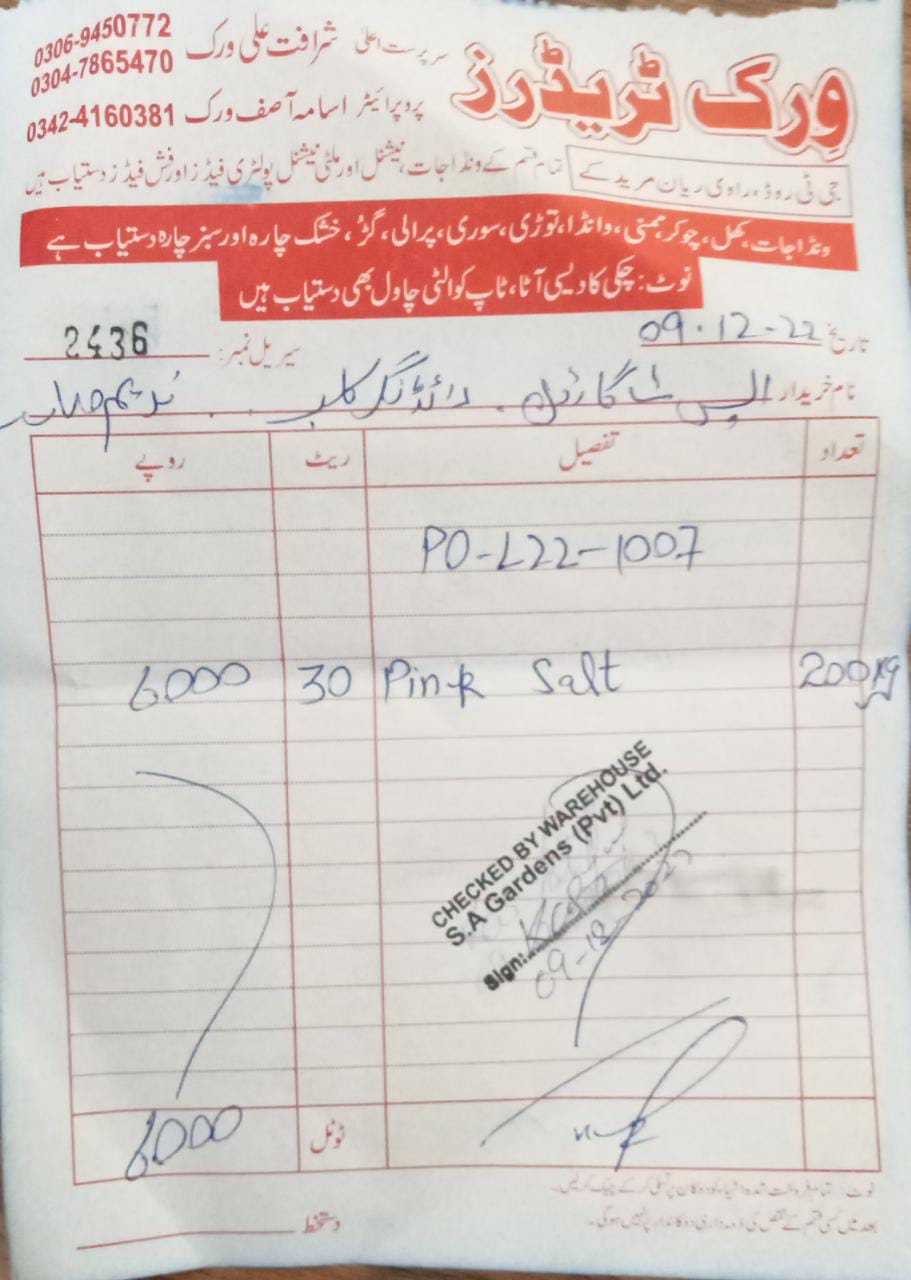 ورک ٹریڈرز
سرپرست اعلیٰ شرافت علی ورک 0306-9450772
0304-7865470
پروپرائیٹر اسامہ آصف ورک 0342-4160381
جی ٹی روڈ، راوی ریان مریدکے
تمام قسم کے ونڈا جات، نیشنل اور ملٹی نیشنل پولٹری فیڈز اور فش فیڈز دستیاب ہیں
ونڈا جات، کھل، چوکر، ہمنی، وانڈا، توڑی، سوری، پرالی، گڑ، خشک چارہ اور سبز چارہ دستیاب ہے
نوٹ: چکی کا دیسی آٹا، ٹاپ کوالٹی چاول بھی دستیاب ہیں
تاریخ 09-12-22 سیریل نمبر: 2436
نام خریدار ایس اے گارڈن رائڈنگ کلب
تعداد تفصیل ریٹ روپے
PO-L22-1007
200 kg Pink Salt 30 6000
CHECKED BY WAREHOUSE
S.A Gardens (Pvt) Ltd.
Sign:
09-12-2022
ٹوٹل 6000
نوٹ: تمام فروخت شدہ اشیاء کو دوکان پر تسلی کر کے چیک کر لیں۔
بعد میں کسی قسم کے نقص کی ذمہ داری دوکاندار پر نہیں ہوگی۔
دستخط